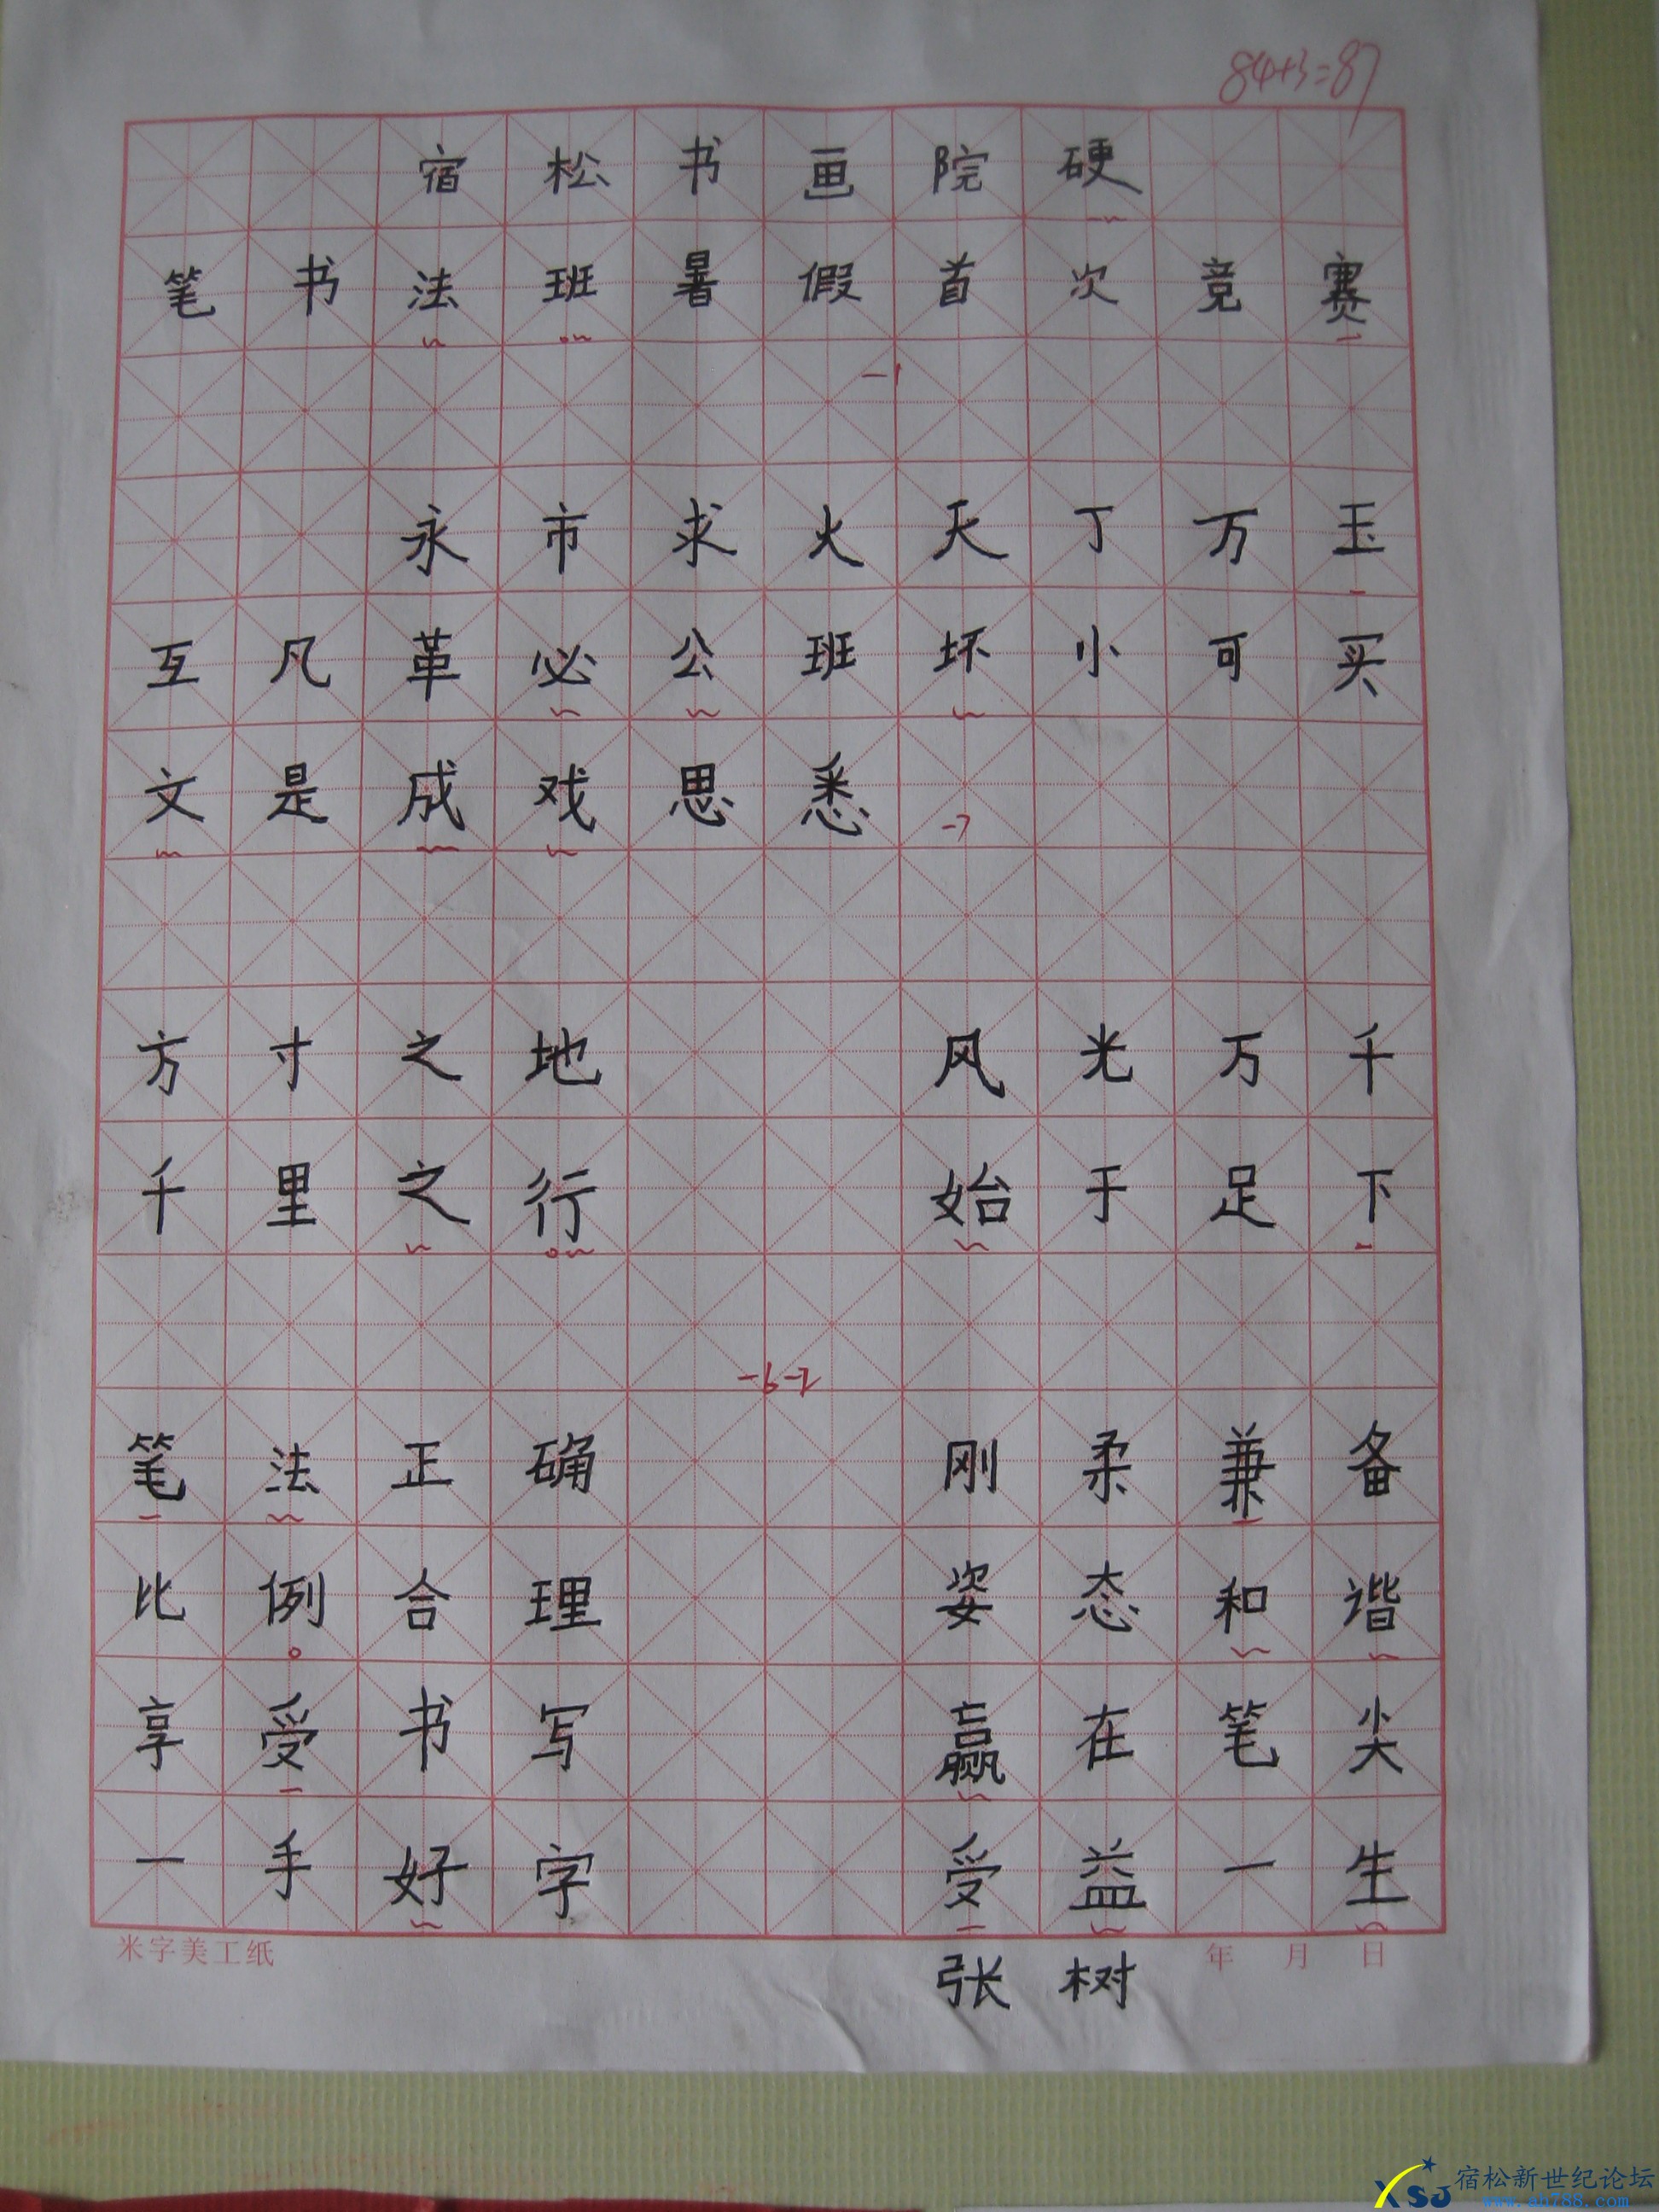 84+3=87
宿松书画院硬
笔书法班暑假首次竞赛
-1
永市求火天丁万玉
互凡革必公班坏小可买
文是成戏思悉
-7
方寸之地 风光万千
千里之行 始于足下
-6-2
笔法正确 刚柔兼备
比例合理 姿态和谐
享受书写 赢在笔尖
一手好字 受益一生
米字美工纸 年 月 日
张树
XSJ 宿松新世纪论坛
www.ah788.com